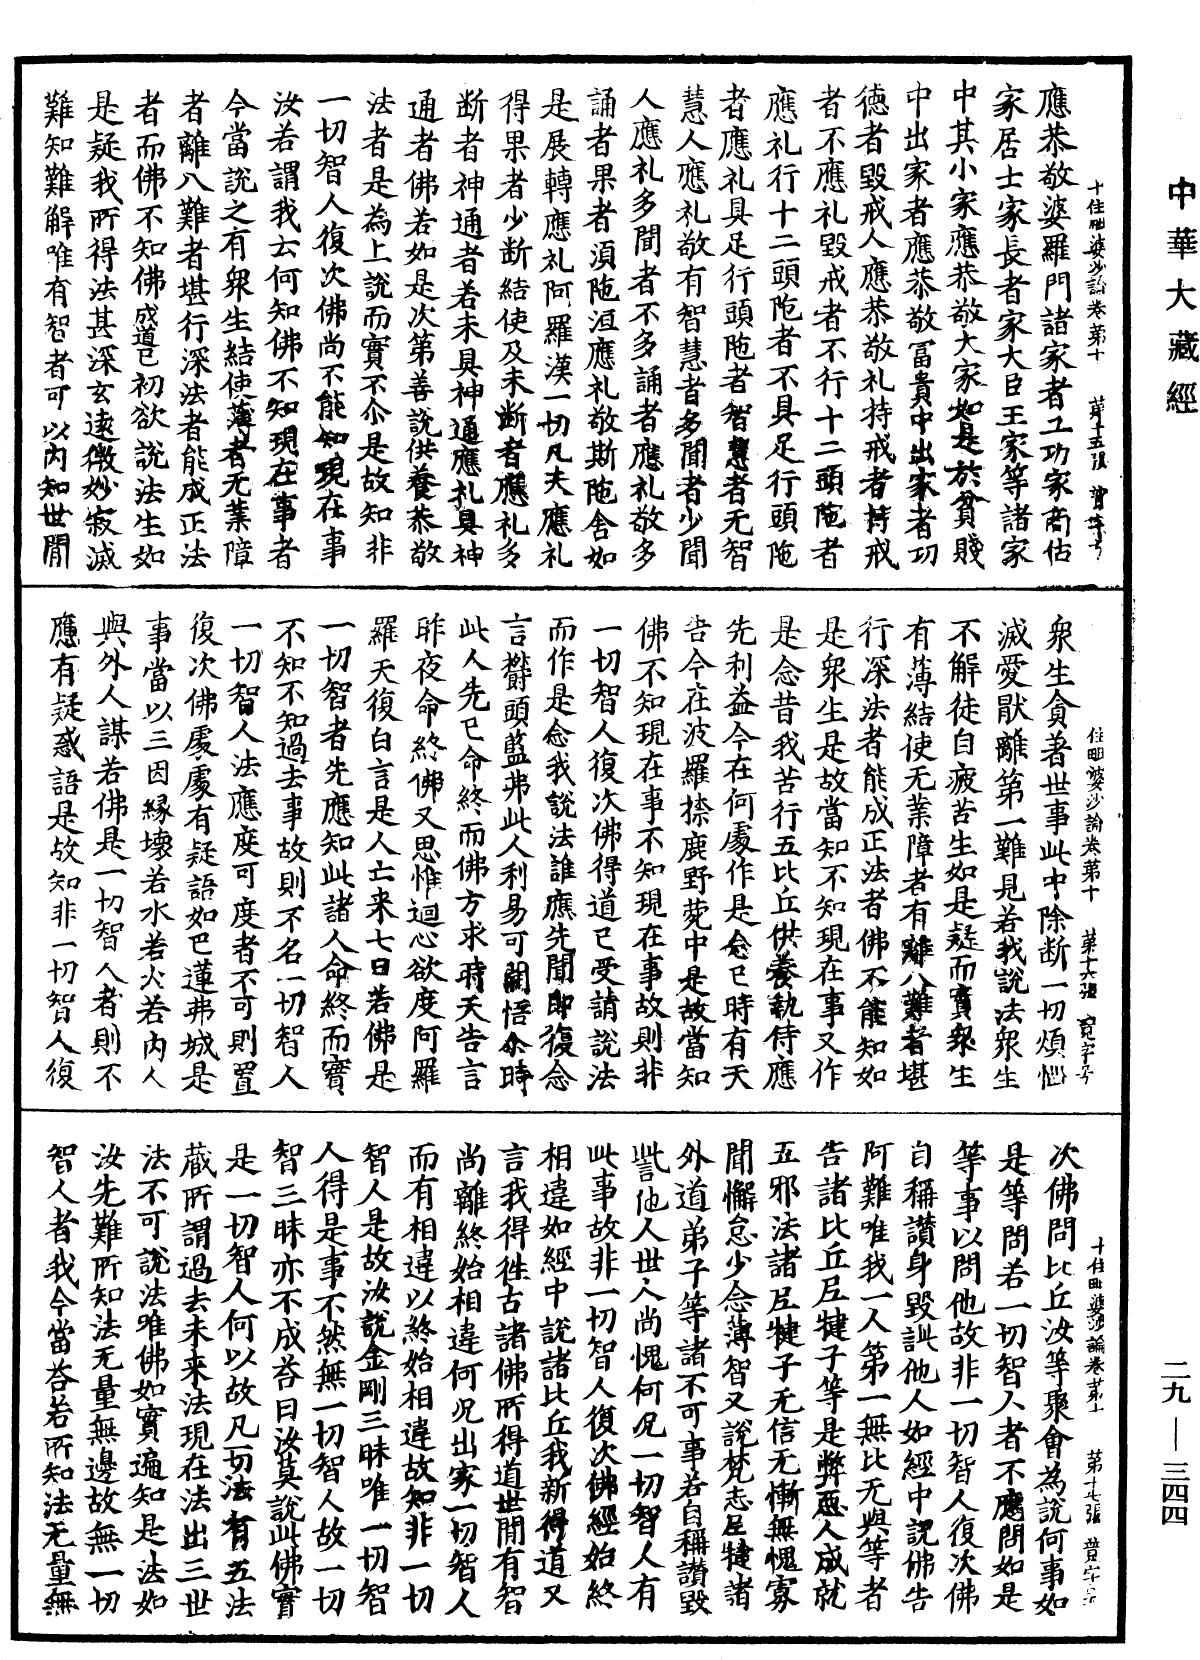 中華大藏經
二九—三四四
十住毗婆沙論卷第十 第十五張
應恭敬婆羅門諸家者工功家商估
家居士家長者家大臣王家等諸家
中其小家應恭敬大家如是於貧賤
中出家者應恭敬冨貴中出家者功
德者毀戒人應恭敬礼持戒者持戒
者不應礼毀戒者不行十二頭陁者
應礼行十二頭陁者不具足行頭陁
者應礼具足行頭陁者智慧者无智
慧人應礼敬有智慧者多聞者少聞
人應礼多聞者不多誦者應礼敬多
誦者果者湏陁洹應礼敬斯陁含如
是展轉應礼阿羅漢一切凡夫應礼
得果者少断結使及未断者應礼多
断者神通者若未具神通應礼具神
通者佛若如是次第善說供養恭敬
法者是為上說而實不尒是故知非
一切智人復次佛尚不能知現在事
汝若謂我云何知佛不知現在事者
今當說之有衆生結使薄者无業障
者離八難者堪行深法者能成正法
者而佛不知佛成道已初欲說法生如
是疑我所得法甚深玄遠微妙寂滅
難知難解唯有智者可以內知世閒
住毗婆沙論卷第十 第十六張
衆生貪著世事此中除断一切煩惱
滅愛猒離第一難見若我說法衆生
不解徒自疲苦生如是疑而實衆生
有薄結使无業障者有離八難者堪
行深法者能成正法者佛不能知如
是衆生是故當知不知現在事又作
是念昔我苦行五比丘供養執侍應
先利益今在何處作是念已時有天
告今在波羅捺鹿野菀中是故當知
佛不知現在事不知現在事故則非
一切智人復次佛得道已受請說法
而作是念我說法誰應先聞即復念
言欝頭藍弗此人利易可開悟尒時
此人先已命終而佛方求時天告言
昨夜命終佛又思惟迴心欲度阿羅
羅天復白言是人亡来七日若佛是
一切智者先應知此諸人命終而實
不知不知過去事故則不名一切智人
一切智人法應度可度者不可則置
復次佛處處有疑語如巴蓮弗城是
事當以三因緣壞若水若火若內人
與外人謀若佛是一切智人者則不
應有疑惑語是故知非一切智人復
十住毗婆沙論卷第十 第十七張
次佛問比丘汝等聚會為說何事如
是等問若一切智人者不應問如是
等事以問他故非一切智人復次佛
自稱讃身毀訿他人如經中說佛告
阿難唯我一人第一無比无與等者
告諸比丘尼犍子等是弊惡人成就
五邪法諸尼犍子无信无慚無愧寡
聞懈怠少念薄智又說梵志尼犍諸
外道弟子等諸不可事若自稱讃毀
訾他人世人尚愧何况一切智人有
此事故非一切智人復次佛經始終
相違如經中說諸比丘我新得道又
言我得徃古諸佛所得道世閒有智
尚離終始相違何况出家一切智人
而有相違以終始相違故知非一切
智人是故汝說金剛三昧唯一切智
人得是事不然無一切智人故一切
智三昧亦不成荅曰汝莫說此佛實
是一切智人何以故凡一切法有五法
藏所謂過去未来法現在法出三世
法不可說法唯佛如實遍知是法如
汝先難所知法无量無邊故無一切
智人者我今當荅若所知法无量無